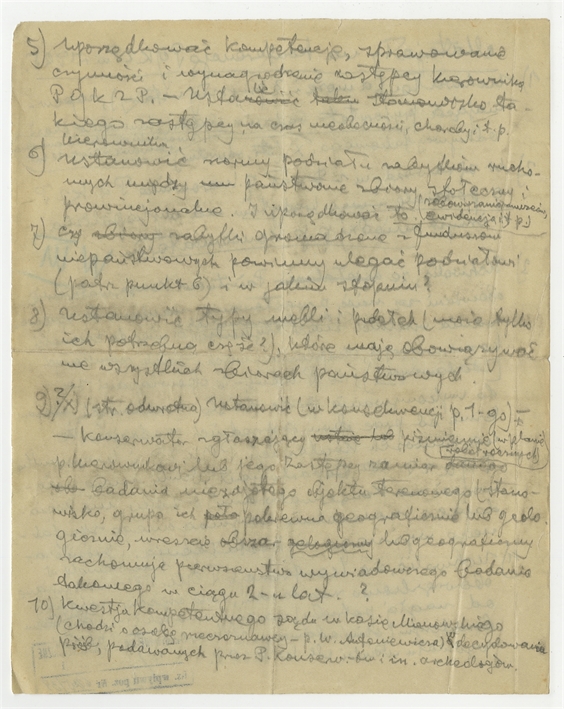 5) Uporządkować kompetencje, sprawowane
czynności i wynagrodzenie zastępcy kierownika
P G K Z P. – Ustanowić stanowisko ta-
kiego zastępcy na czas nieobecności, choroby i t. p.
kierownika.
6) Ustanowić normy podziału zabytków rucho-
mych między państwowe zbiory stołeczny i
prowincjonalne. I uporządkować to (ewidencja i t p.)
7) Czy zabytki gromadzone z funduszów
niepaństwowych powinny ulegać podziałowi
(patrz punkt 6) i w jakim stopniu?
8) Ustanowić typy mebli i pudełek (może tylko
ich potrzebną część?), które mają obowiązywać
we wszystkich zbiorach państwowych.
9) (str. odwrotna) Ustanowić (w konsekwencji p. 1-go)
– Konserwator zgłaszający w planie
p. kierownikowi lub jego zastępcy zamiar
badania niezajętego objektu terenowego (stano-
wisko, grupa ich pokrewna geograficznie lub geolo-
gicznie, wreszcie obszar lub geograficzny
zachowuje pierwszeństwo wywiadowczego badania
takowego w ciągu 2-u lat. ?
10) Kwestja kompetentnego sądu w kasie Mianowskiego
(chodzi o osobę – p. W. Antoniewicza) decydowania
próśb podawanych przez P. Konserw. i in. archeologów.